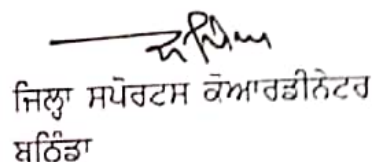 ਜਿਲ੍ਹਾ ਸਪੋਰਟਸ ਕੋਆਰਡੀਨੇਟਰ
ਬਠਿੰਡਾ